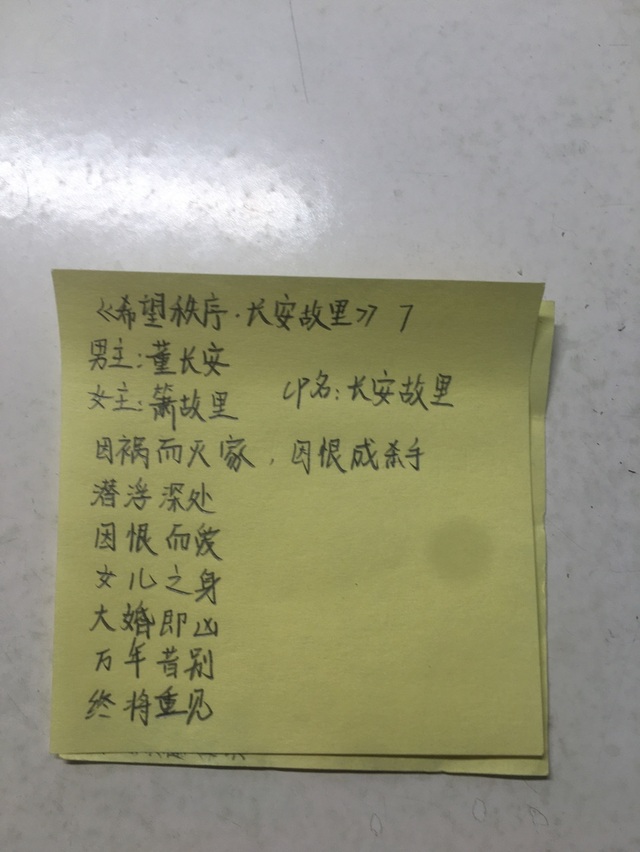 《希望秩序·长安故里》7
男主:董长安
女主:萧故里 CP名:长安故里
因祸而灭家,因恨成杀手
潜浮深处
因恨而爱
女儿之身
大婚即凶
万年昔别
终将重见